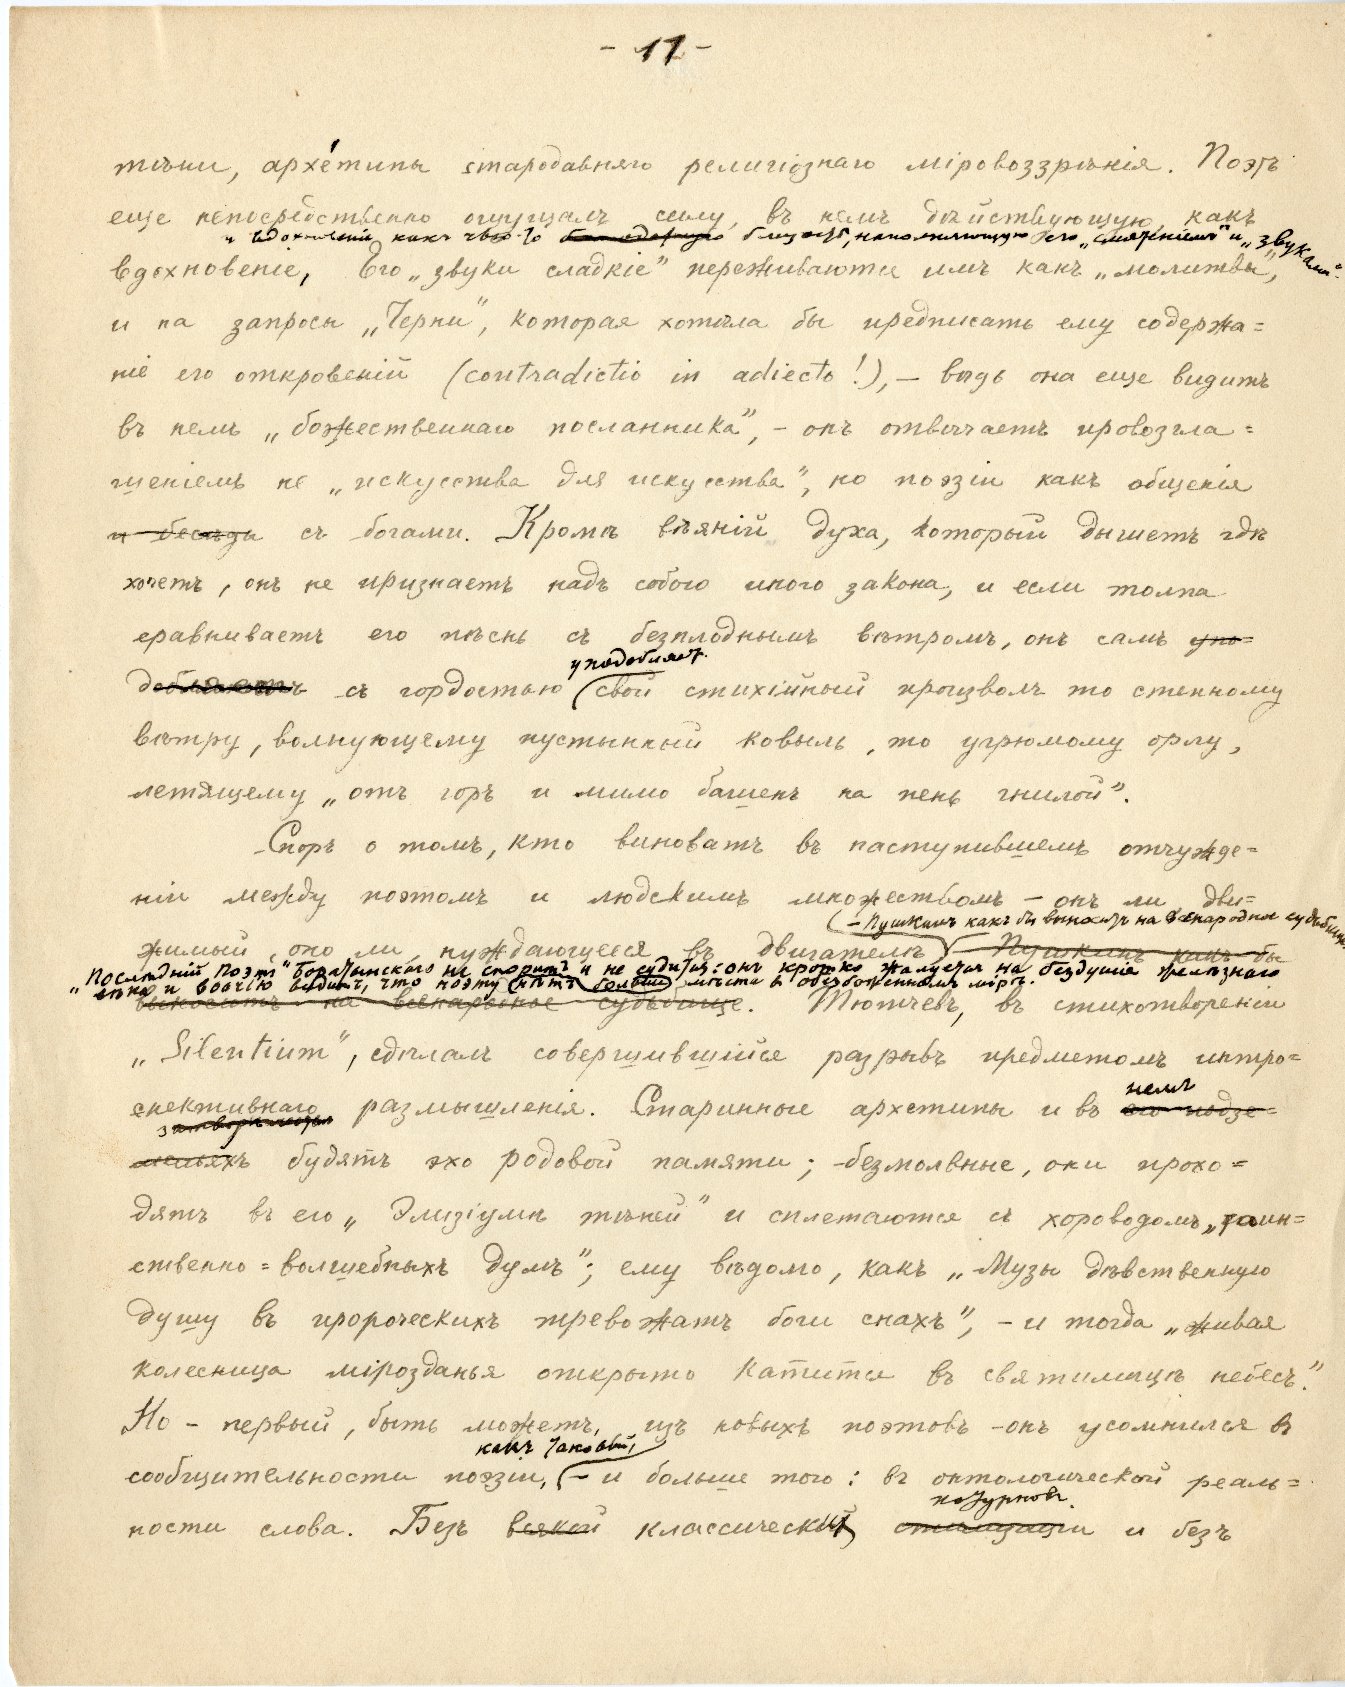 - 11 -
тѣни, архетипы стародавняго религіознаго міровоззрѣнія. Поэтъ
еще непосредственно ощущалъ силу, въ немъ дѣйствующую, какъ
и вдохновеній какъ чью-то близость, наполняющую его „смятеніемъ" и „звуками".
вдохновеніе, Его „звуки сладкіе" переживаются имъ какъ „молитвы",
и на запросы „Черни", которая хотѣла бы предписать ему содержа=
ніе его откровеній (contradictio in adiecto!), — вѣдь она еще видитъ
въ немъ „божественнаго посланника", - онъ отвѣчаетъ провозгла=
шеніемъ не „искусства для искусства", но поэзіи какъ общенія
и бесѣды съ богами. Кромѣ вѣяній Духа, который дышетъ гдѣ
хочетъ, онъ не признаетъ надъ собою иного закона, и если толпа
сравниваетъ его пѣснь съ безплоднымъ вѣтромъ, онъ самъ упо=
уподобляетъ
добляетъ съ гордостью свой стихійный произволъ то степному
вѣтру, волнующему пустынный ковыль, то угрюмому орлу,
летящему „отъ горъ и мимо башенъ на пень гнилой".
Споръ о томъ, кто виноватъ въ наступившемъ отчужде=
ніи между поэтомъ и людскимъ множествомъ - онъ ли дви=
— Пушкинъ какъ бы выноситъ на всенародное судьбище.
жимый, оно ли, нуждающееся въ двигателѣ — Пушкинъ какъ бы
„Послѣдній Поэтъ" Боратынскаго не споритъ и не судится: онъ кротко жалуется на бездушіе желѣзнаго
вѣка и воочію видитъ, что поэту нѣтъ больше мѣста въ обезбоженномъ мірѣ.
выноситъ на всенародное судьбище. Тютчевъ, въ стихотвореніи
„Silentium", сдѣлалъ совершившійся разрывъ предметомъ интро=
немъ
спективнаго размышленія. Старинные архетипы и въ его подзе=
мельяхъ будятъ эхо родовой памяти; безмолвные, они прохо=
дятъ въ его „Элизіумѣ тѣней" и сплетаются съ хороводомъ „таин=
ственно=волшебныхъ думъ"; ему вѣдомо, какъ „Музы дѣвственную
душу въ пророческихъ тревожатъ боги снахъ", - и тогда „живая
колесница мірозданья открыто катится въ святилищѣ небесъ".
Но - первый, быть можетъ, изъ новыхъ поэтовъ - онъ усомнился въ
какъ таковой,
сообщительности поэзіи, - и больше того: въ онтологической реаль=
котурновъ
ности слова. Безъ всякой классическихъ стилизаціи и безъ